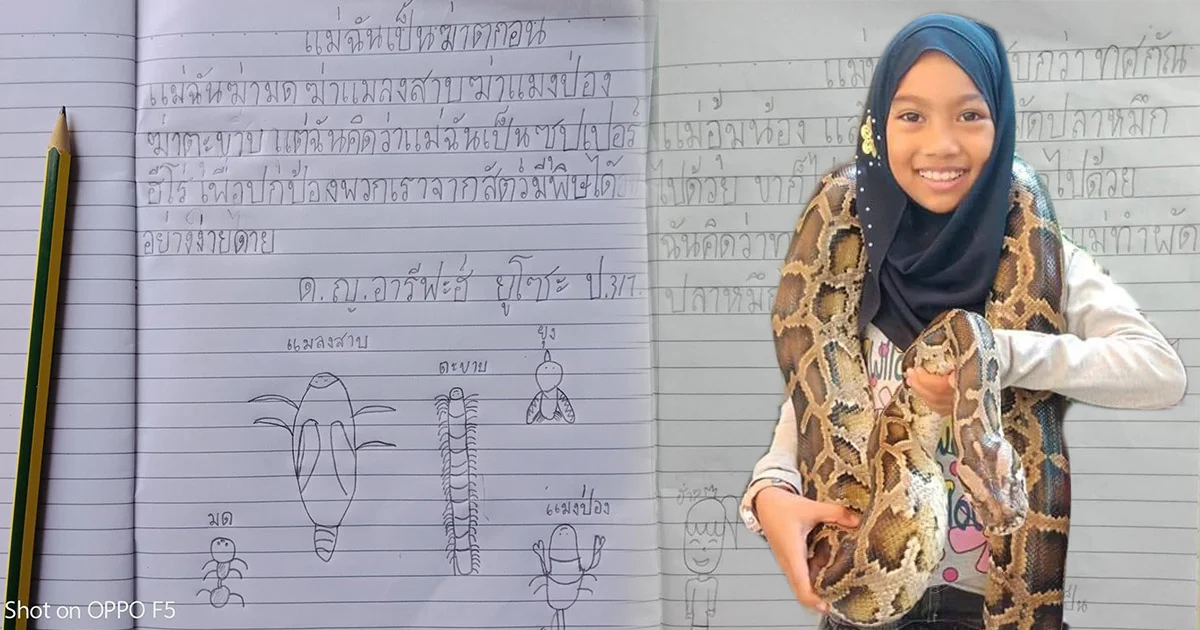 แม่ฉันเป็นฆ่าตกอน
แม่ฉันฆ่ามด ฆ่าแมลงสาบ ฆ่าแมงป่อง
ฆ่าตะขาบ แต่ฉันคิดว่าแม่ฉันเป็นซุปเปอร์
ฮีโร่ เพื่อปกป้องพวกเราจากสัตว์มีพิษได้
อย่างง่ายดาย
ด.ญ.อารีฟะฮ์ ยูโซะ ป.3/7
แมลงสาบ
ตะขาบ
ยุง
มด
แมงป่อง
Shot on OPPO F5
แม่อุ้มน้อง ผัดปลาหมึก
ไปด้วย ไปด้วย
ฉันคิดว่า แม่ทำผัด